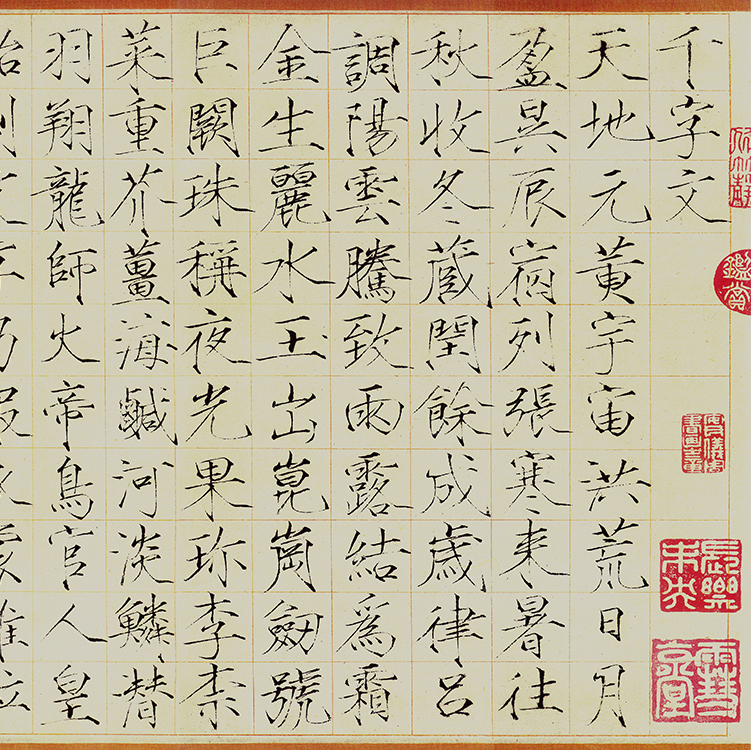 千字文
天地元黃宇宙洪荒日月
盈昃辰宿列張寒来暑往
秋收冬藏閏餘成歲律呂
調陽雲騰致雨露結爲霜
金生麗水玉出崑崗劒號
巨闕珠稱夜光果珎李柰
菜重芥薑海鹹河淡鱗潛
羽翔龍師火帝鳥官人皇
鑑賞
長樂未央